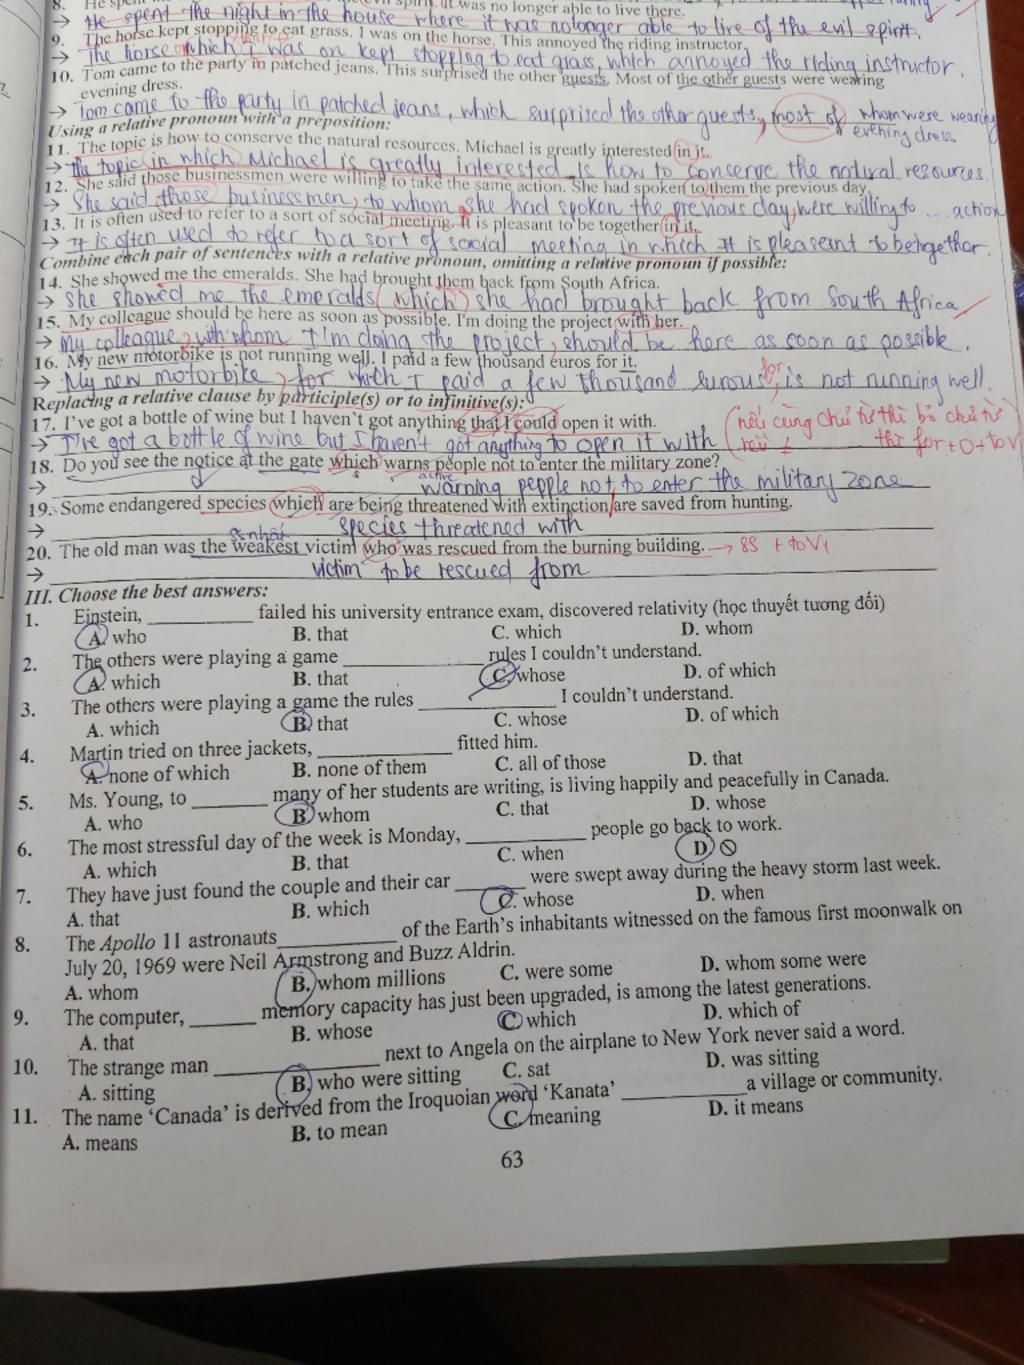 8. He spent evil spirit. It was no longer able to live there.
→ He spent the night in the house where it was no longer able to live of the evil spirit.
9. The horse kept stopping to eat grass. I was on the horse. This annoyed the riding instructor.
→ The horse which I was on kept stopping to eat grass, which annoyed the riding instructor.
10. Tom came to the party in patched jeans. This surprised the other guests. Most of the other guests were wearing
evening dress.
→ Tom came to the party in patched jeans, which surprised the other guests, most of whom were wearing
evening dress
Using a relative pronoun with a preposition:
11. The topic is how to conserve the natural resources. Michael is greatly interested in it.
→ the topic in which Michael is greatly interested is how to conserve the natural resources.
12. She said those businessmen were willing to take the same action. She had spoken to them the previous day.
→ She said those businessmen, to whom she had spoken the previous day, were willing to ... action
13. It is often used to refer to a sort of social meeting. It is pleasant to be together in it.
→ It is often used to refer to a sort of social meeting in which It is pleasant to
Combine each pair of sentences with a relative pronoun, omitting a relative pronoun if possible:
14. She showed me the emeralds. She had brought them back from South Africa.
→ She showed me the emeralds (which) she had brought back from South Africa
15. My colleague should be here as soon as possible. I'm doing the project with her.
→ My colleague, with whom I'm doing the project, should be here as soon as possible.
16. My new motorbike is not running well. I paid a few thousand euros for it.
for
→ My new motorbike, for which I paid a few thousand is not running well.
Replacing a relative clause by participle(s) or to infinitive(s):
17. I've got a bottle of wine but I haven't got anything that I could open it with.
(nếu cùng chủ từ thì bỏ chủ từ
→ I've got a bottle of wine but I haven't got anything to open it with
thì for + O + to V
18. Do you see the notice at the gate which warns people not to enter the military zone?
active
→ warning people not to enter the military zone
19. Some endangered species which are being threatened with extinction are saved from hunting.
→ species threatened with
so nhất
20. The old man was the weakest victim who was rescued from the burning building. → SS + to V1
→ victim to be rescued from
III. Choose the best answers:
1. Einstein, __________ failed his university entrance exam, discovered relativity (học thuyết tương đối)
A. who B. that C. which D. whom
2. The others were playing a game __________ rules I couldn't understand.
A. which B. that C. whose D. of which
3. The others were playing a game the rules __________ I couldn't understand.
A. which B. that C. whose D. of which
4. Martin tried on three jackets, __________ fitted him.
A. none of which B. none of them C. all of those D. that
5. Ms. Young, to _______ many of her students are writing, is living happily and peacefully in Canada.
A. who B. whom C. that D. whose
6. The most stressful day of the week is Monday, __________ people go back to work.
A. which B. that C. when D. ∅
7. They have just found the couple and their car _______ were swept away during the heavy storm last week.
A. that B. which C. whose D. when
8. The Apollo 11 astronauts __________ of the Earth's inhabitants witnessed on the famous first moonwalk on
July 20, 1969 were Neil Armstrong and Buzz Aldrin.
A. whom B. whom millions C. were some D. whom some were
9. The computer, ______ memory capacity has just been upgraded, is among the latest generations.
A. that B. whose C. which D. which of
10. The strange man __________ next to Angela on the airplane to New York never said a word.
A. sitting B. who were sitting C. sat D. was sitting
11. The name 'Canada' is derived from the Iroquoian word 'Kanata' __________ a village or community.
A. means B. to mean C. meaning D. it means
63